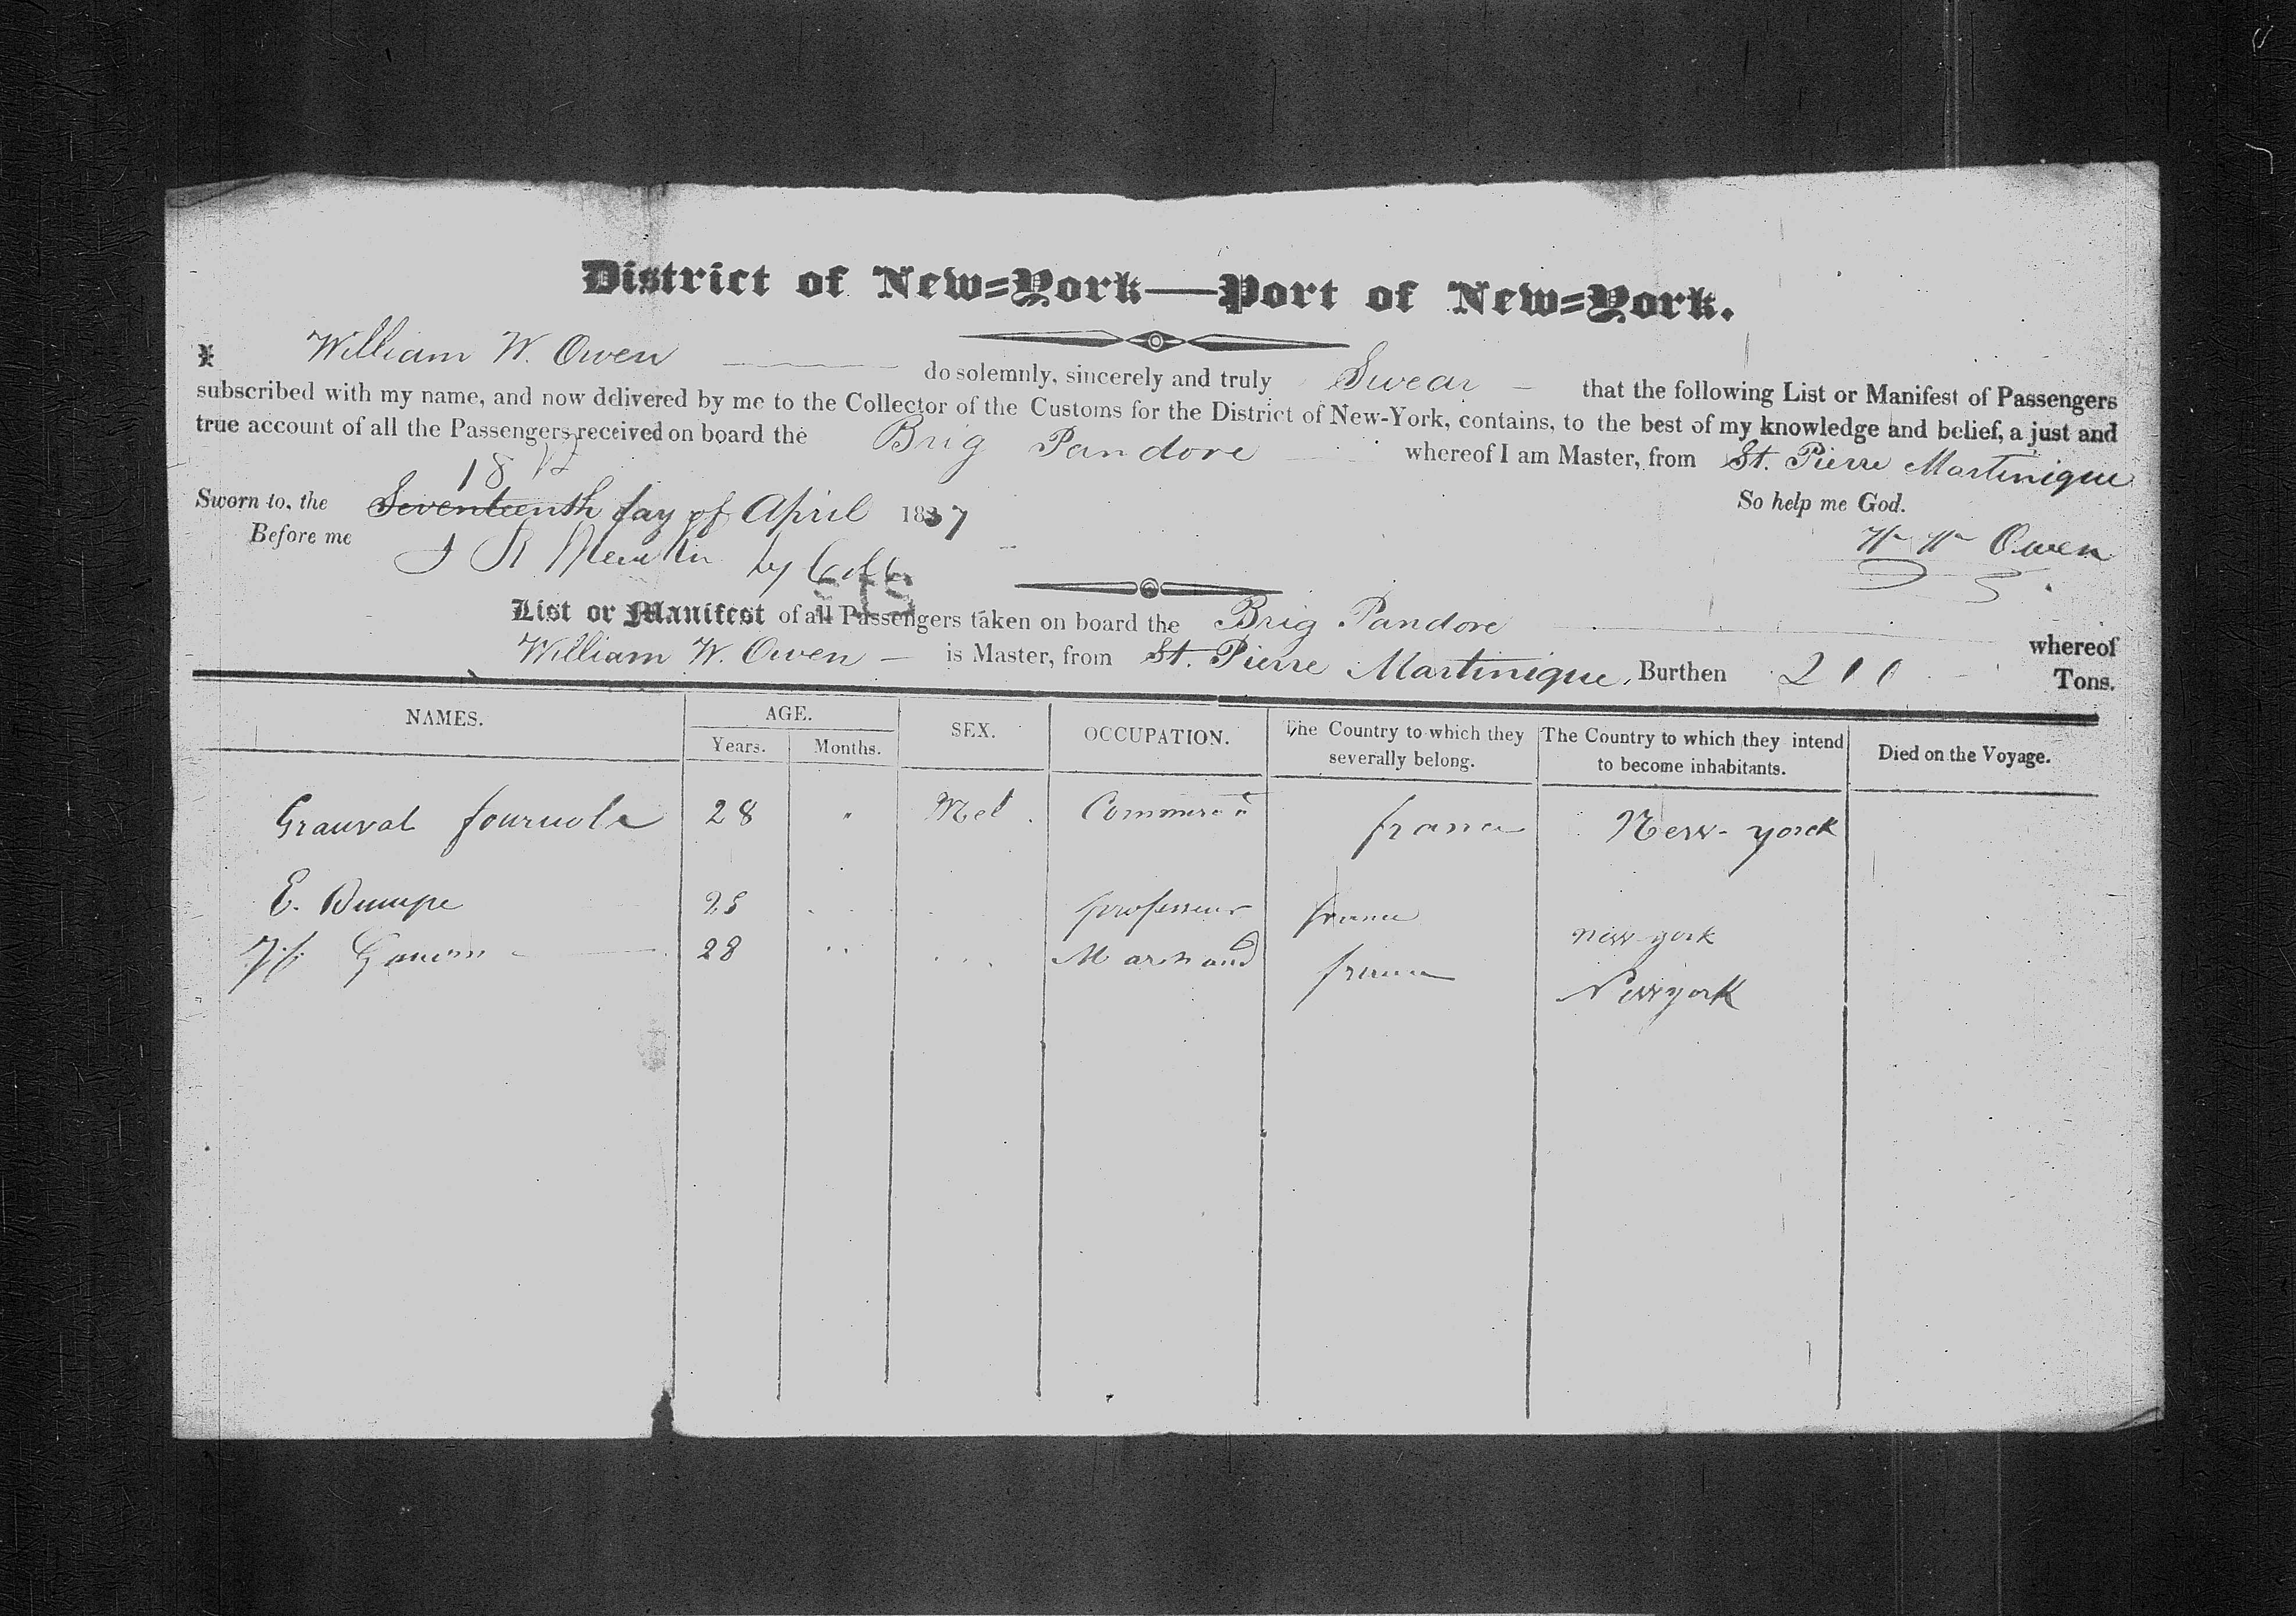 District of New=York—Port of New=York.
I William W. Owen do solemnly, sincerely and truly Swear that the following List or Manifest of Passengers
subscribed with my name, and now delivered by me to the Collector of the Customs for the District of New-York, contains, to the best of my knowledge and belief, a just and
true account of all the Passengers received on board the Brig Pandore whereof I am Master, from St. Pierre Martinique
18
Sworn to, the Seventeenth day of April 1837 So help me God.
Before me Wm Wm Owen
List or Manifest of all Passengers taken on board the Brig Pandore whereof
William W. Owen is Master, from St. Pierre Martinique, Burthen Tons.
NAMES. AGE. SEX. OCCUPATION. The Country to which they severally belong. The Country to which they intend to become inhabitants. Died on the Voyage.
Years. Months.
Grauval 28 " france New-yorck
E. 25 professeur france new york
28 Marchand france Newyork